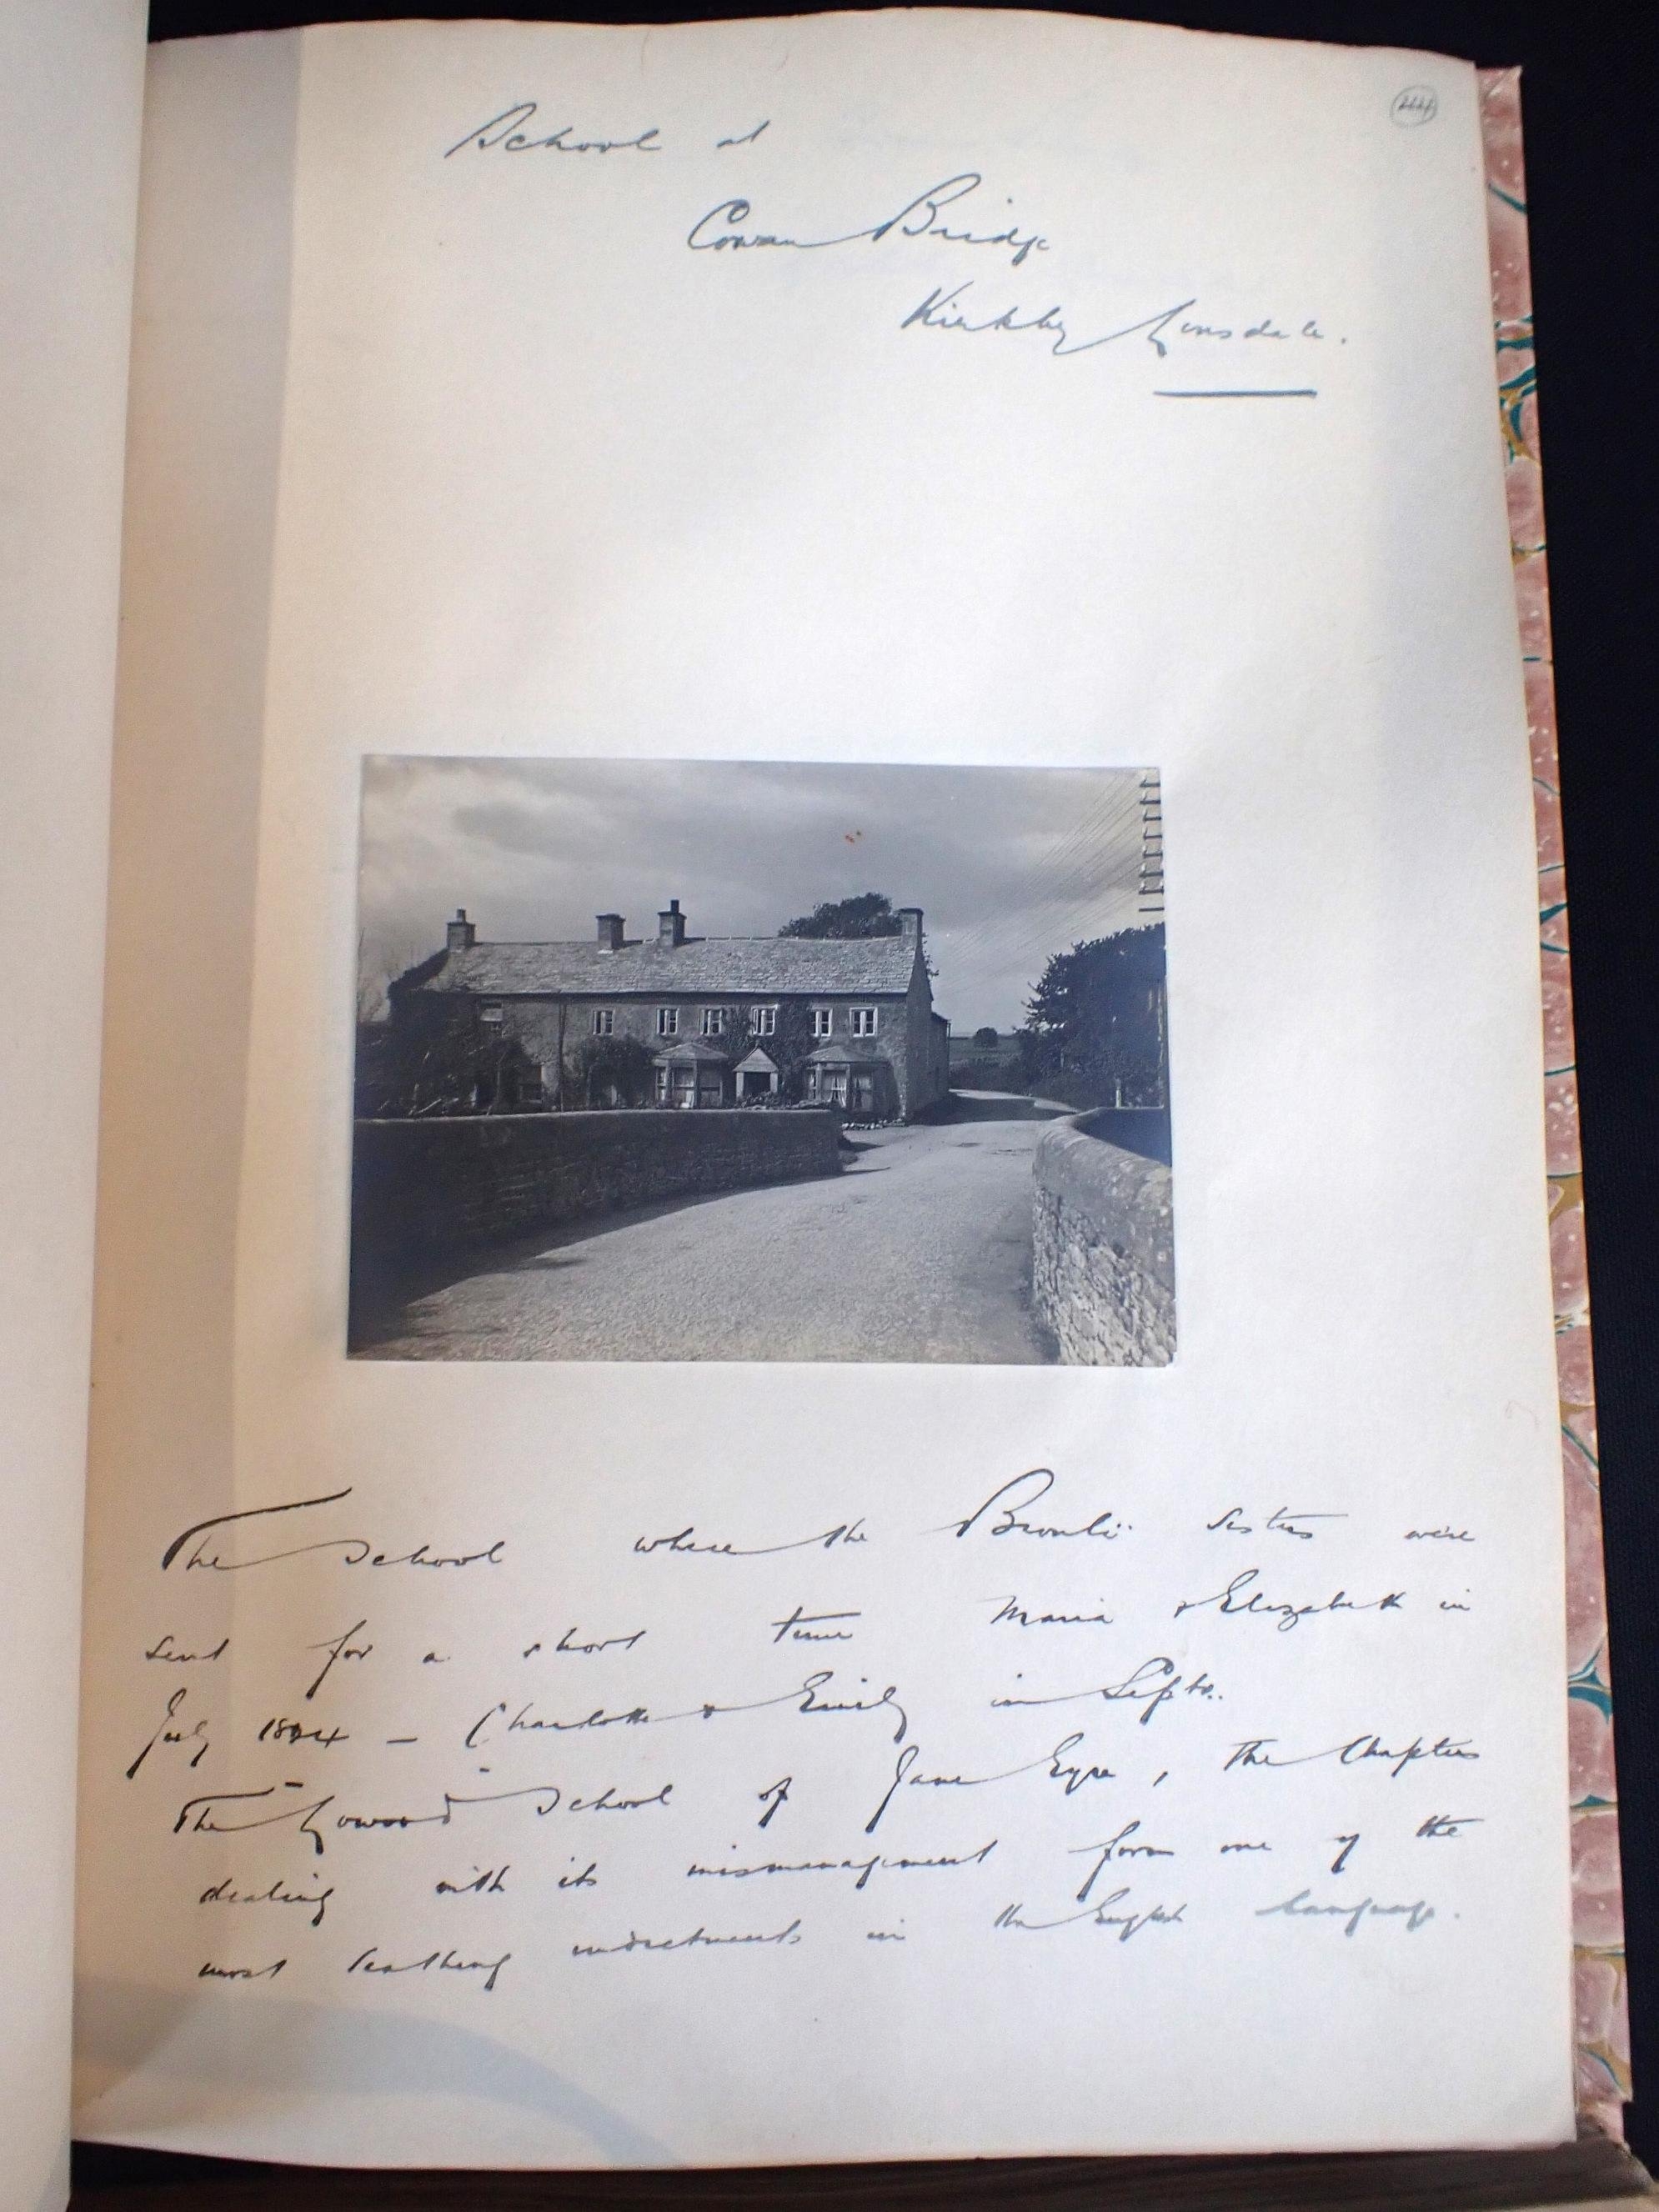 School at
Cowan Bridge
Kirkby Lonsdale.
The School where the Brontë sisters were
sent for a short time Maria & Elizabeth in
July 1824 – Charlotte & Emily in Septr..
The "Lowood" School of Jane Eyre, the Chapters
dealing with its mismanagement form one of the
most scathing indictments in the English language.